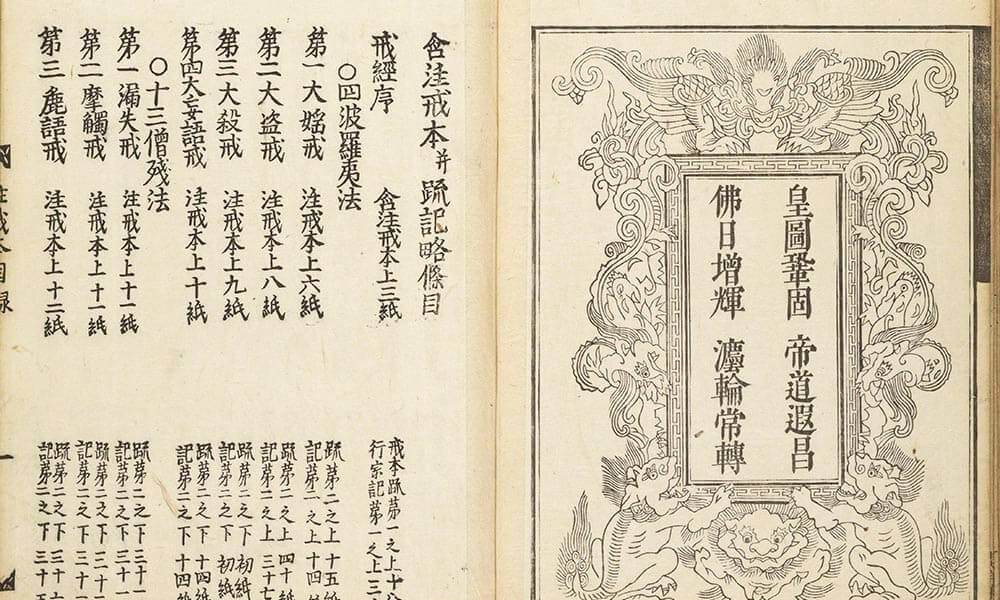 皇圖鞏固 帝道遐昌
佛日增輝 灋輪常轉
含注戒本并䟽記略條目
戒經序 含注戒本上三紙
戒本䟽第一之上十
行宗記第一之上三
○四波羅夷法
第一大婬戒 注戒本上六紙
䟽第二之上十五
記第一之上十四
第二大盗戒 注戒本上八紙
䟽第二之上四十紙
記第二之上三十七
第三大殺戒 注戒本上九紙
䟽第二之下初紙
記第二之下初紙
第四大妄語戒 注戒本上十紙
䟽第二之下十四紙
記第二之下十四
○十三僧殘法
第一漏失戒 注戒本上十一紙
䟽第二之下三十一
記第二之下三十一
第二摩觸戒 注戒本上十一紙
䟽第二之下三十
記第二之下三十
第三麁語戒 注戒本上十二紙
䟽第二之下三十
記第二之下三十五
注戒本目録 一